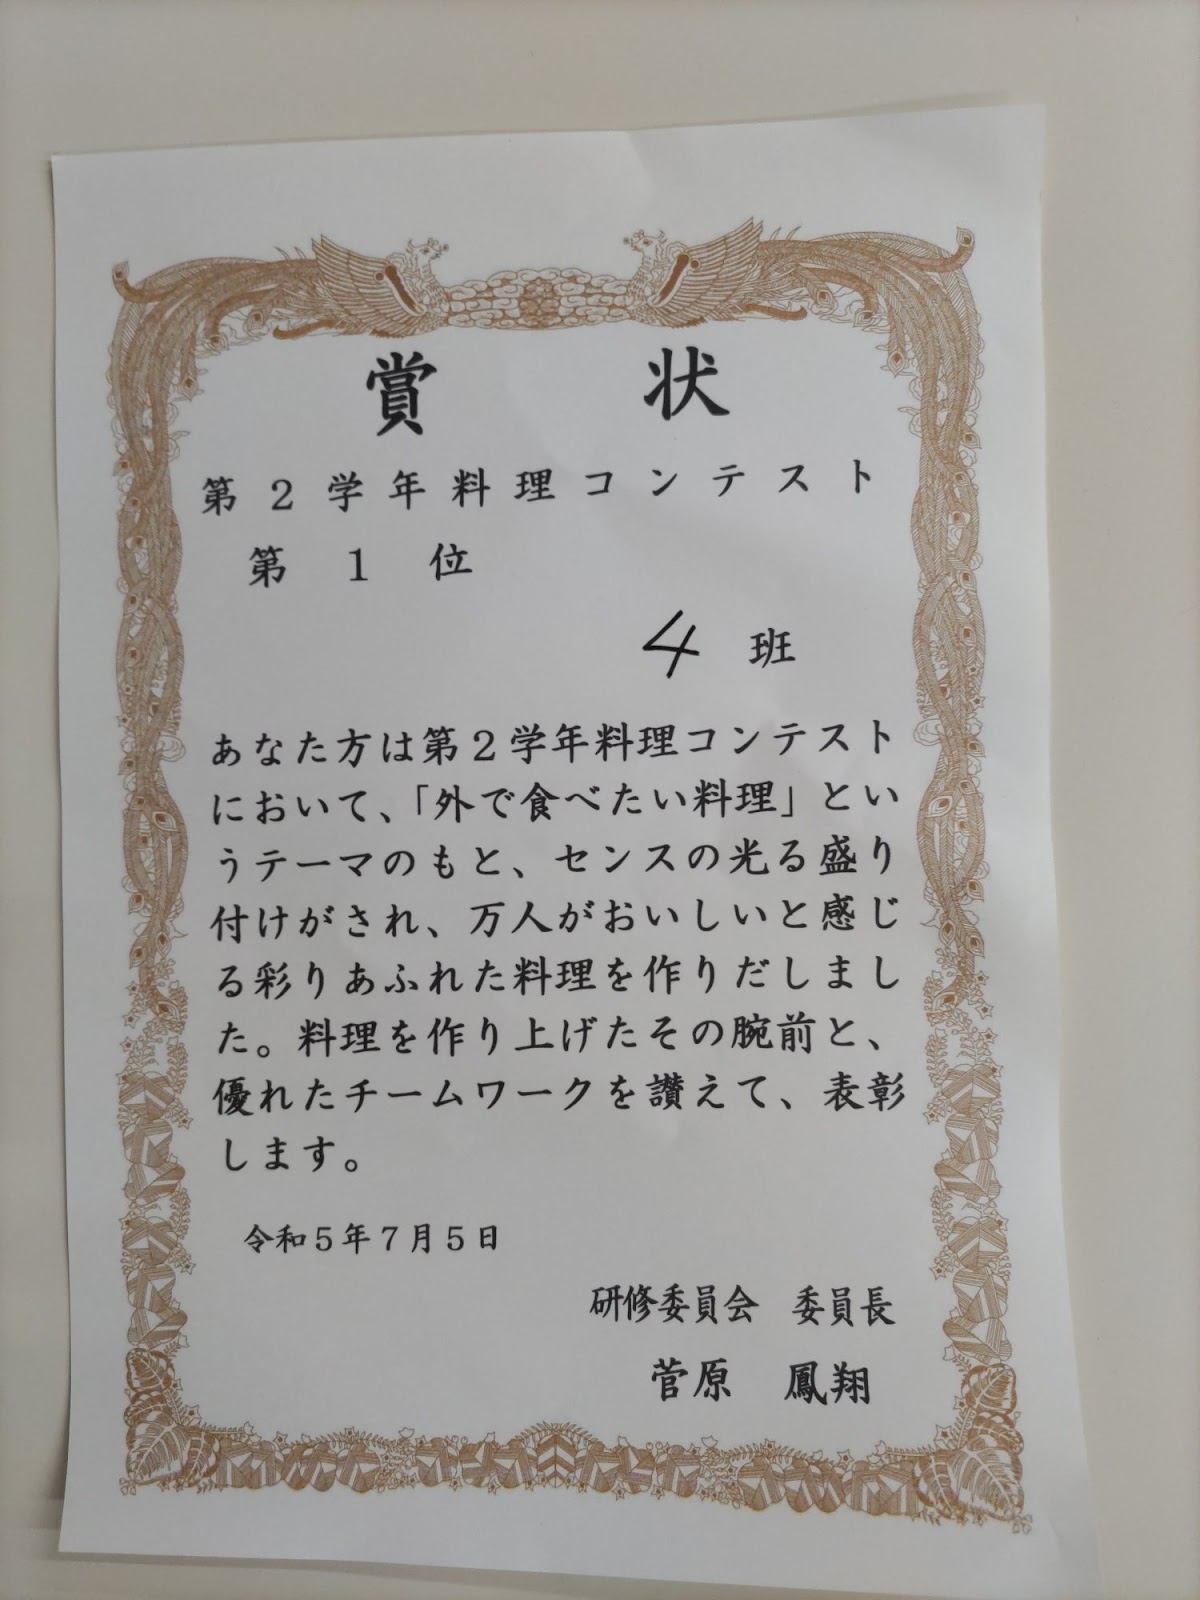 賞状
第2学年料理コンテスト
第1位
4班
あなた方は第2学年料理コンテスト
において、「外で食べたい料理」とい
うテーマのもと、センスの光る盛り
付けがされ、万人がおいしいと感じ
る彩りあふれた料理を作りだしまし
た。料理を作り上げたその腕前と、
優れたチームワークを讃えて、表彰
します。
令和5年7月5日
研修委員会 委員長
菅原 鳳翔